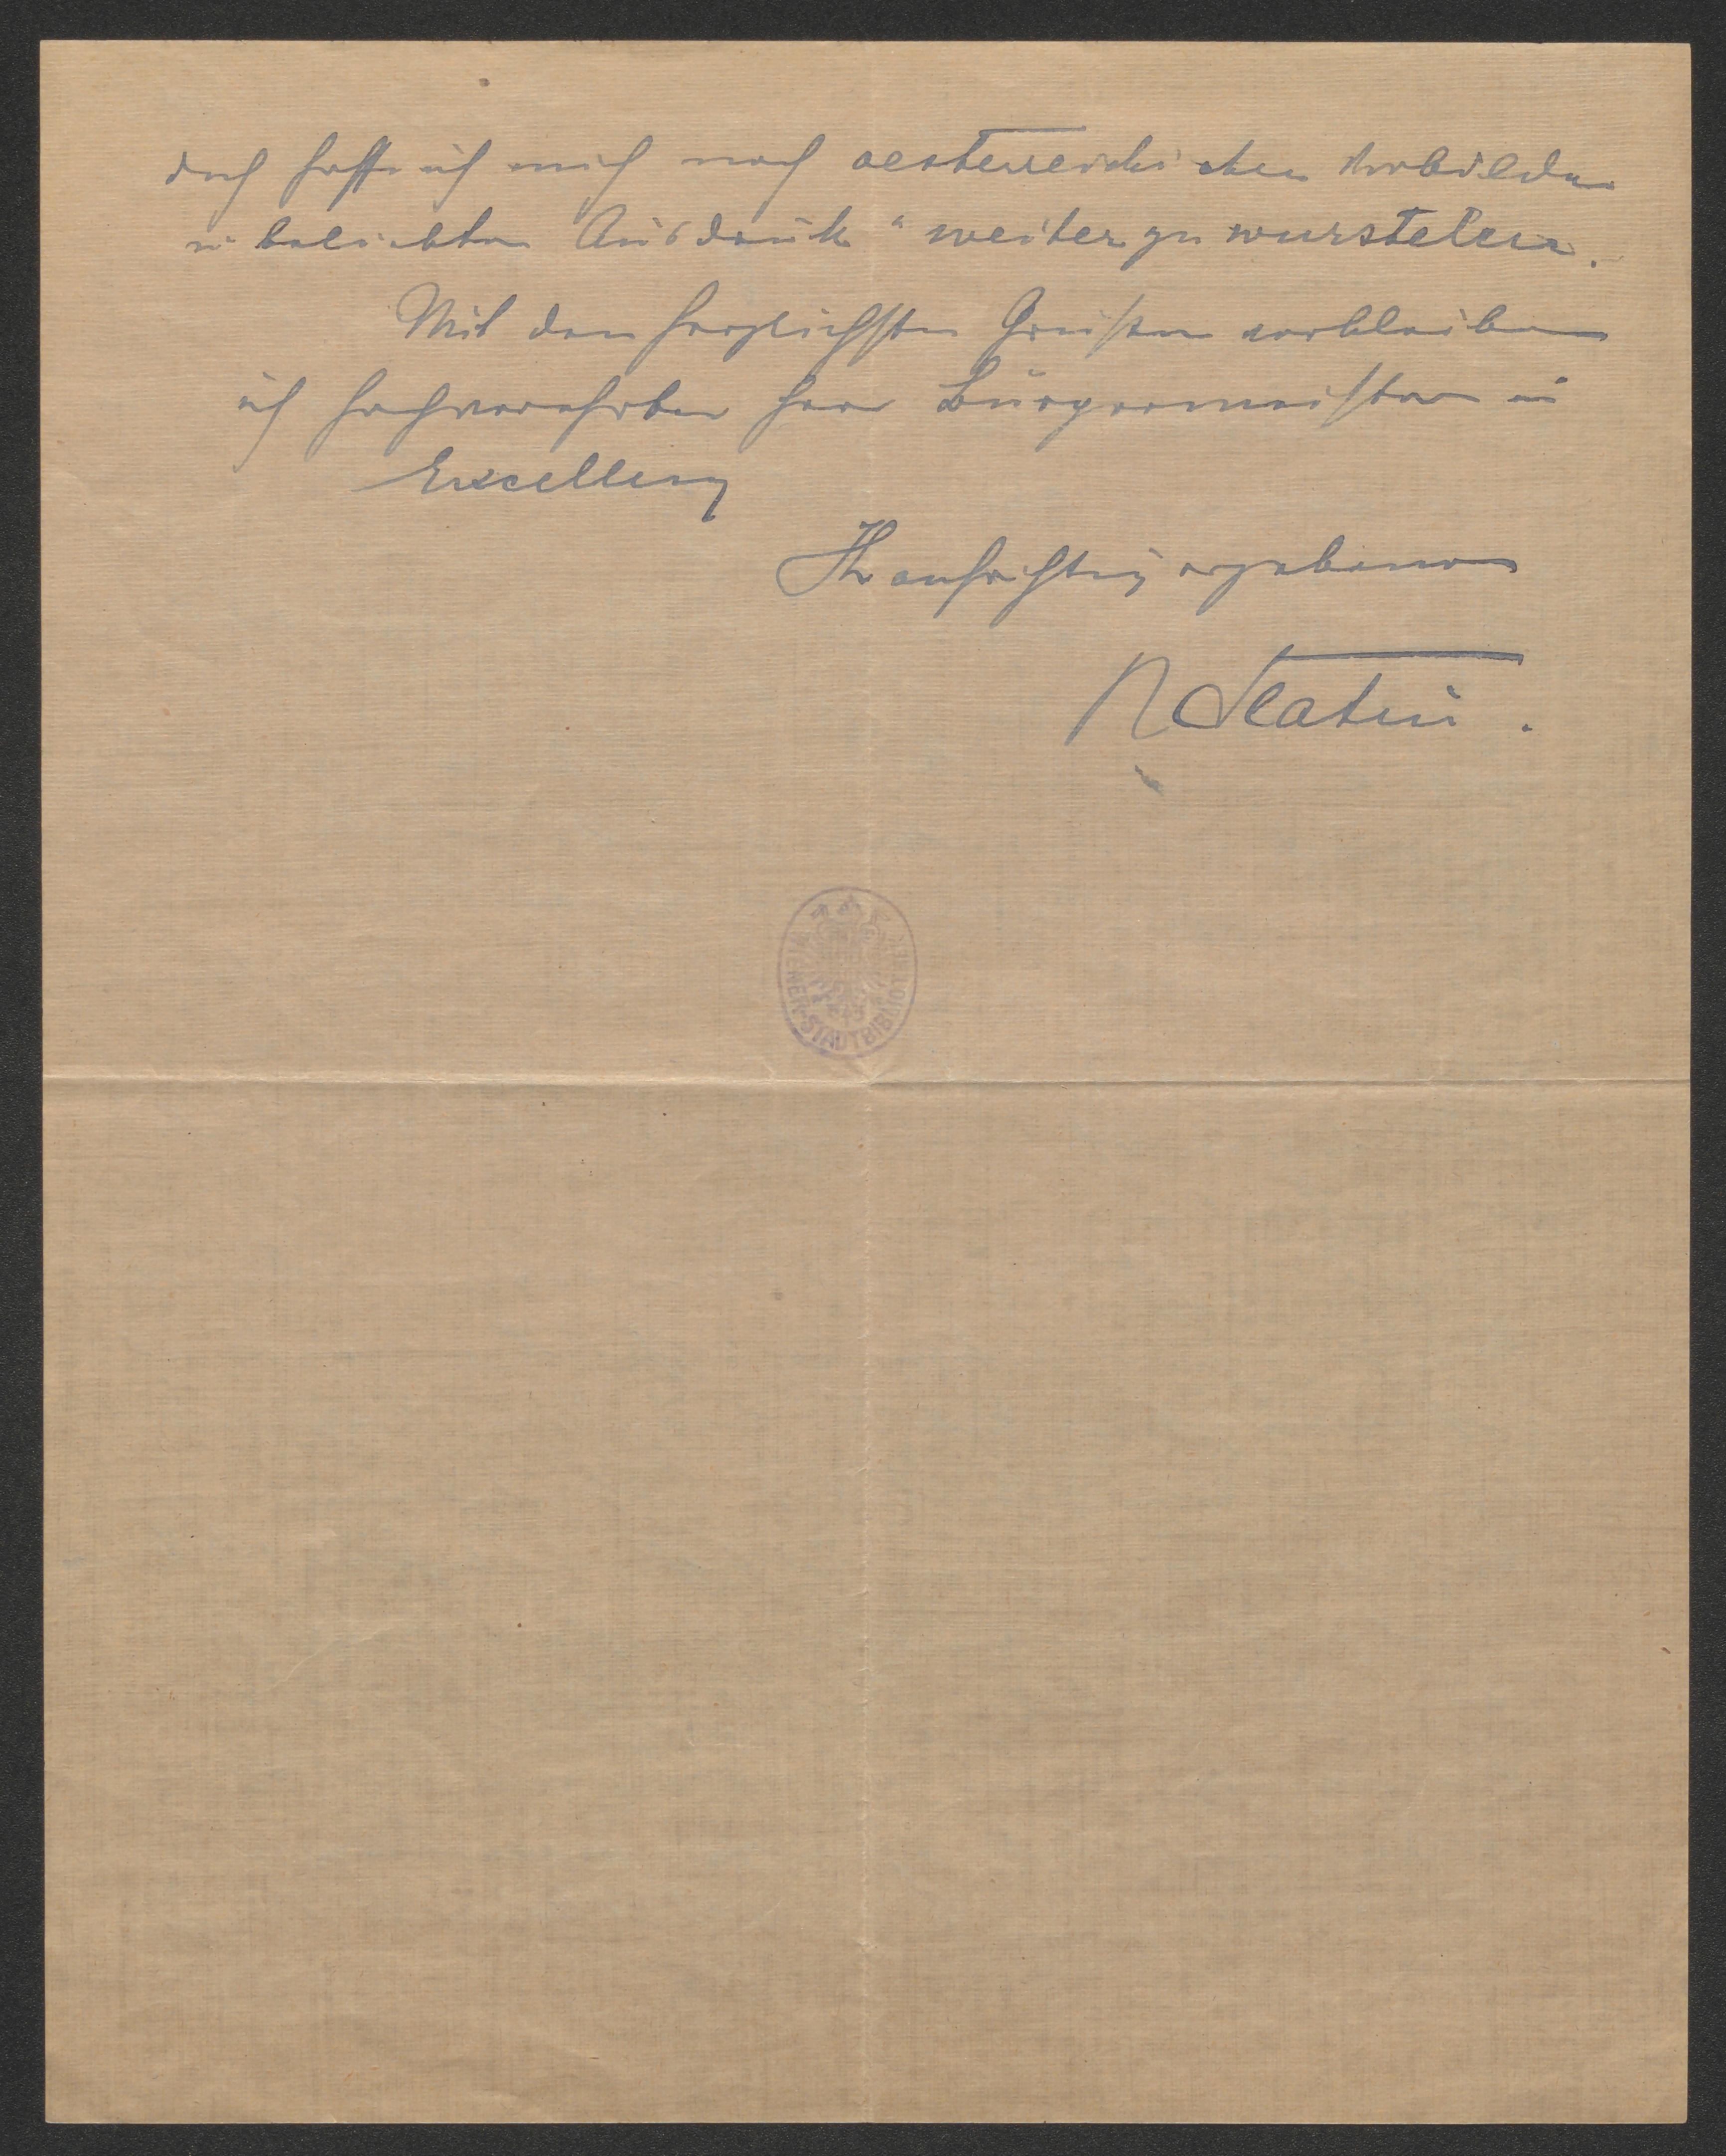 doch hoffe ich mich nach oesterreichischen Vorbildern
u beliebten Ausdruck "weiter zu wursteln.
Mit den herzlichsten Grüßen verbleibe
ich hochverehrter Herr Bürgermeister u
Excellenz
Ihr aufrichtig ergebener
R Slatin.
WIENER-STADTBIBLIOTHEK